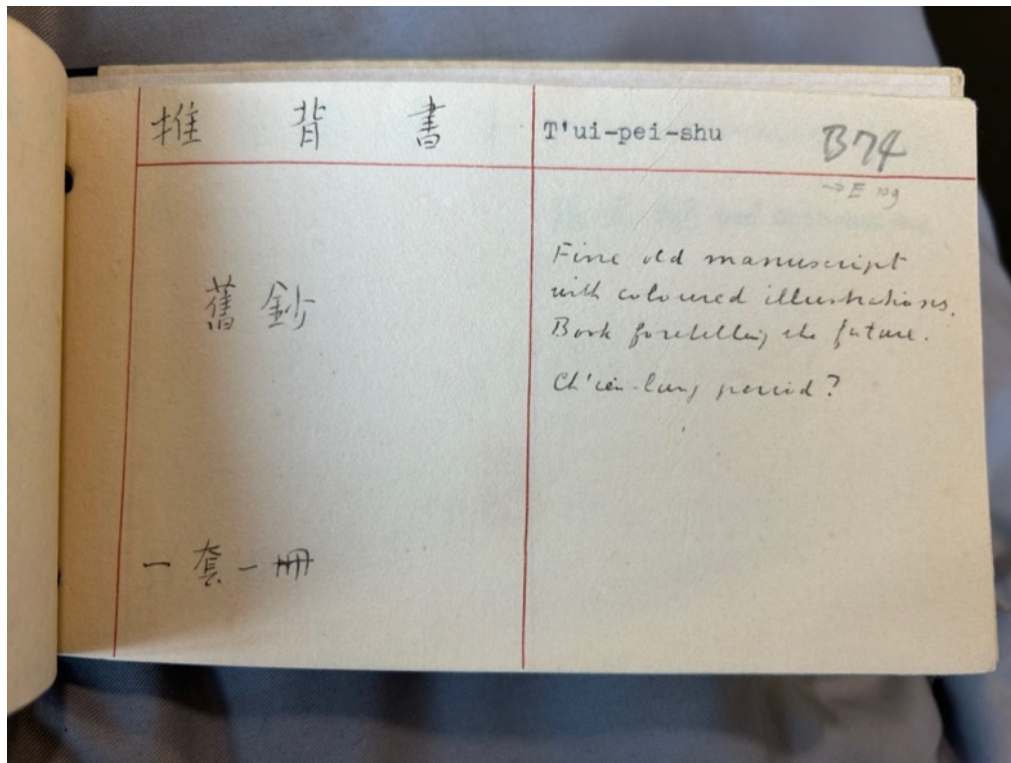 推背書
T'ui-pei-shu
B74
→ E 109
舊鈔
Fine old manuscript
with coloured illustrations.
Book foretelling the future.
Ch'ien-lung period?
一套一冊